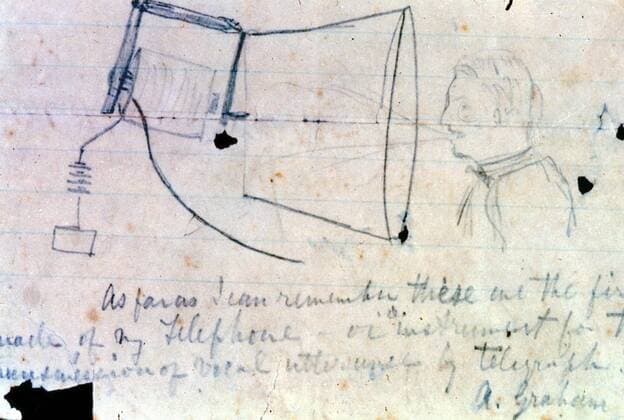 As far as I can remember these are the fir
made of my Telephone - or "instrument for t
ansmission of vocal utterance by telegraph.
A. Graham